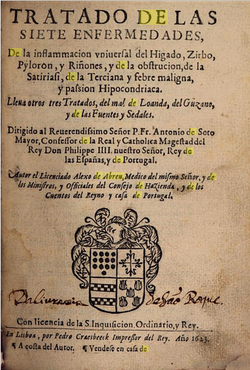 TRATADO DE LAS
SIETE ENFERMEDADES,
De la inflammacion vniuersal del Higado, Zirbo,
Pyloron, y Riñones, y de la obstrucion, de la
Satiriasi, de la Terciana y febre maligna,
y passion Hipocondriaca.
Lleua otros tres Tratados, del mal de Loanda, del Guzano,
y de las Fuentes y Sedales.
Dirigido al Reuerendissimo Señor P. Fr. Antonio de Soto
Mayor, Confessor de la Real y Catholica Magestad del
Rey Don Philippe IIII. nuestro Señor, Rey de
las Españas, y de Portugal.
Autor el Licenciado Alexo de Abreu, Medico del mismo Señor, y de
los Ministros, y Officiales del Consejo de Hazienda, y de los
Cuentos del Reyno y casa de Portugal.
Da livraria de São Roque
Con licencia de la S. Inquisicion Ordinario, y Rey.
En Lisboa, por Pedro Craesbeeck Impressor del Rey. Año 1623.
¶ A costa del Autor. ¶ Vendese en casa de